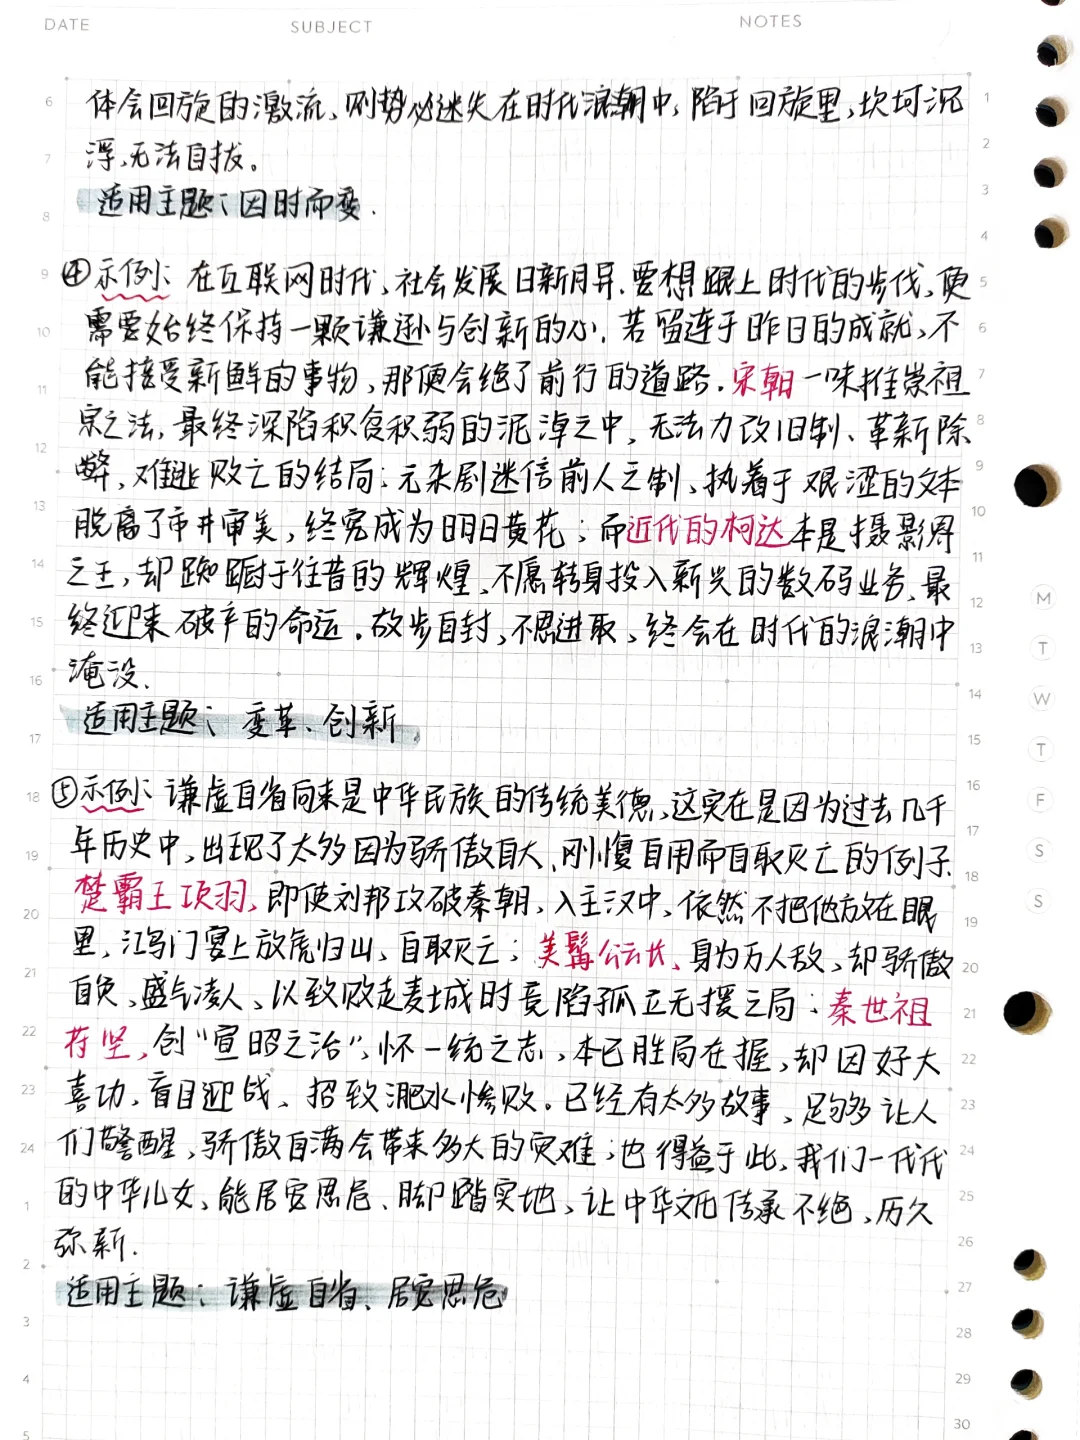 DATE SUBJECT NOTES
体会回旋的激流,则势必迷失在时代浪潮中,陷于回旋里,坎坷沉
浮,无法自拔。
适用主题:因时而变.
④示例:在互联网时代,社会发展日新月异.要想跟上时代的步伐,便
需要始终保持一颗谦逊与创新的心.若留连于昨日的成就,不
能接受新鲜的事物,那便会绝了前行的道路.宋朝一味推崇祖
宗之法,最终深陷积贫积弱的泥淖之中,无法力改旧制、革新除
弊,难逃败亡的结局;元杂剧迷信前人之制,执着于艰涩的文本
脱离了市井审美,终究成为明日黄花;而近代的柯达本是摄影界
之王,却踟蹰于往昔的辉煌,不愿转身投入新兴的数码业务,最
终迎来破产的命运.故步自封,不思进取,终会在时代的浪潮中
淹没.
适用主题:变革、创新
⑤示例:谦虚自省向来是中华民族的传统美德,这实在是因为过去几千
年历史中,出现了太多因为骄傲自大、刚愎自用而自取灭亡的例子.
楚霸王项羽,即使刘邦攻破秦朝,入主汉中,依然不把他放在眼
里,鸿门宴上放虎归山,自取灭亡;美髯公云长,身为万人敌,却骄傲
自负,盛气凌人,以致败走麦城时竟陷孤立无援之局;秦世祖
苻坚,创“宣昭之治”,怀一统之志,本已胜局在握,却因好大
喜功,盲目迎战,招致淝水惨败.已经有太多故事,足够让人
们警醒,骄傲自满会带来多大的灾难;也得益于此,我们一代代
的中华儿女,能居安思危、脚踏实地,让中华文化传承不绝,历久
弥新.
适用主题:谦虚自省、居安思危
M
T
W
T
F
S
S